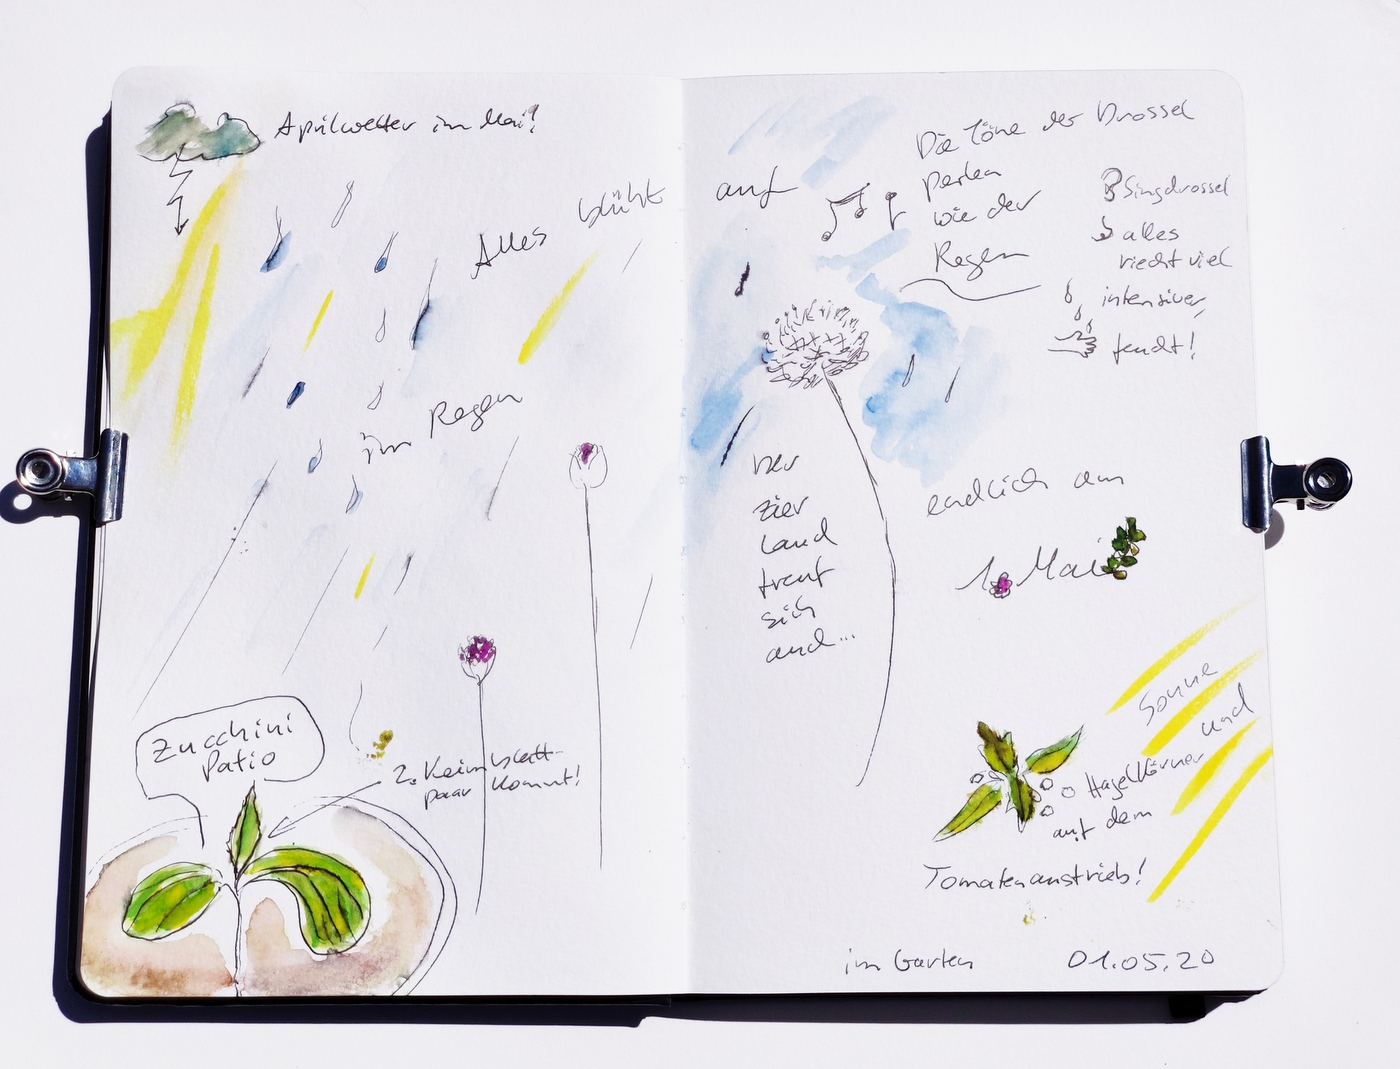 Aprilwetter im Mai?
Alles blüht
im Regen
Zucchini
Patio
2. Keimblatt-
paar kommt!
auf
Die Töne der Drossel
perlen
wie der
Regen
Singdrossel
alles
riecht viel
intensiver,
feucht!
Der
Zier
Lauch
freut
sich
auch...
endlich am
1. Mai
Sonne
und
Hagelkörner
auf dem
Tomatenaustrieb!
im Garten
01.05.20